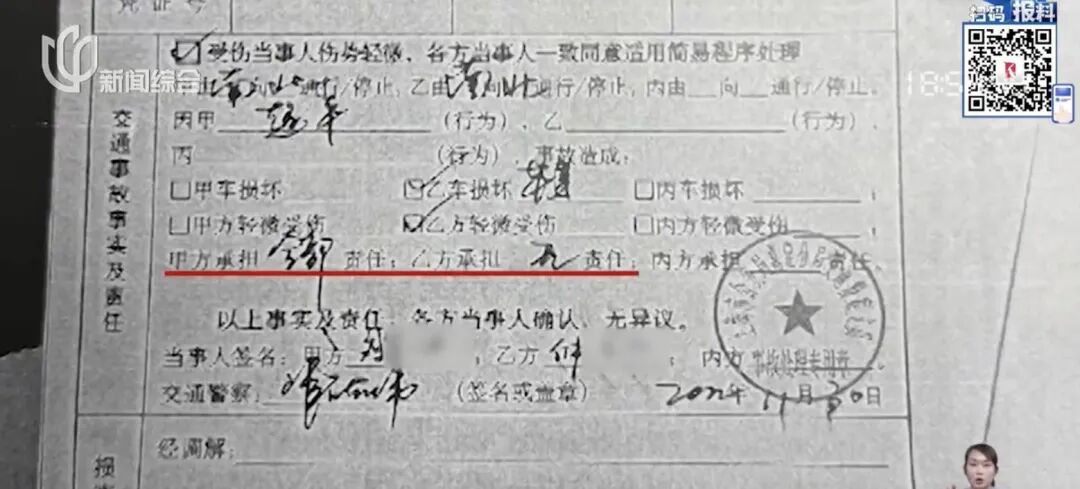 凭证号
扫码 报料
新闻综合
受伤当事人伤势轻微，各方当事人一致同意适用简易程序处理
甲由南向北通行/停止；乙由南向北通行/停止，丙由___向___通行/停止。
因甲 （行为），乙 （行为），
丙 （行为），事故造成：
甲车损坏 乙车损坏 丙车损坏 ；
甲方轻微受伤 乙方轻微受伤 丙方轻微受伤 ；
甲方承担 全部 责任；乙方承担 无 责任；丙方承担 责任。
以上事实及责任，各方当事人确认、无异议。
当事人签名：甲方 ；乙方 ；丙方
事故处理专用章
交通警察： （签名或盖章） 2022年11月30日
交通事故事实及责任
经调解：
损